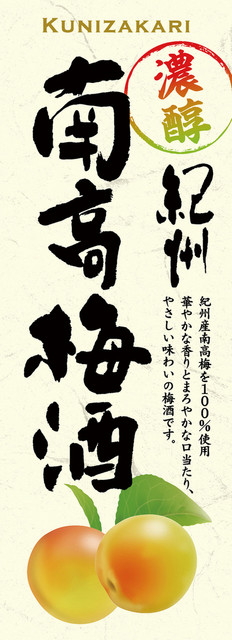 KUNIZAKARI
濃醇
紀州
南高梅酒
紀州産南高梅を100%使用
華やかな香りとまろやかな口当たり、
やさしい味わいの梅酒です。